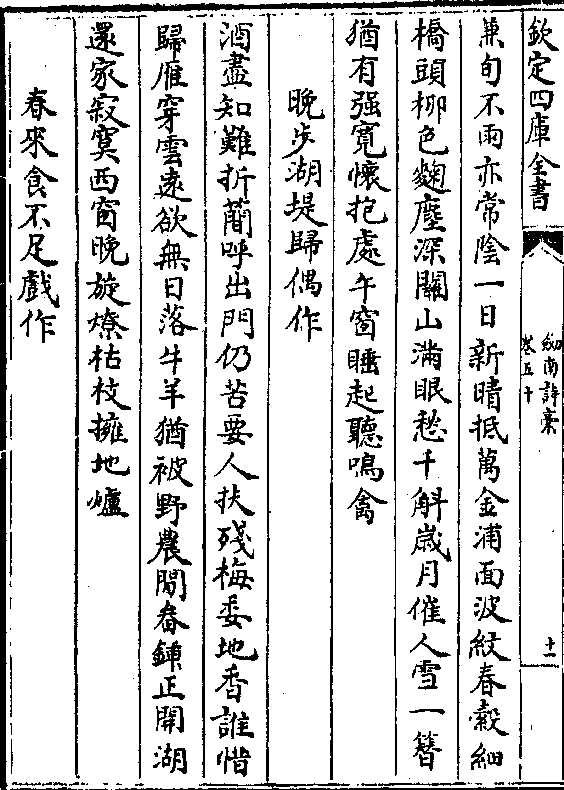 欽定四庫全書
劒南詩稾
卷五十
十一
兼旬不雨亦常陰一日新晴抵萬金浦面波紋春縠細
橋頭柳色麴塵深關山滿眼愁千斛歲月催人雪一簪
猶有强寬懷抱處午窗睡起聽鳴禽
晚步湖堤歸偶作
酒盡知難折簡呼出門仍苦要人扶殘梅委地香誰惜
歸雁穿雲遠欲無日落牛羊猶被野農閒畚鍤正開湖
還家寂寞西窗晚旋燎枯枝擁地爐
春來食不足戲作